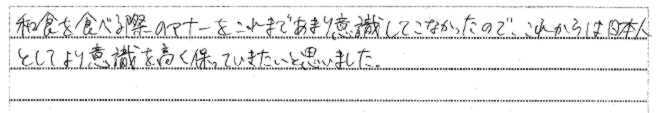 和食を食べる際のマナーをこれまであまり意識してこなかったので、これからは日本人
としてより意識を高く保っていきたいと思いました。